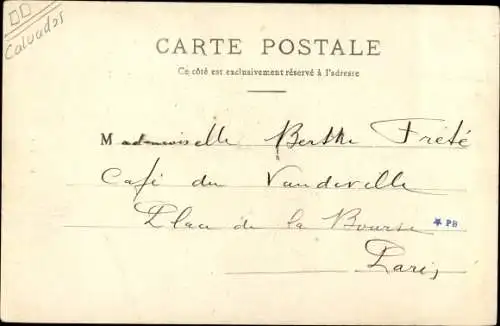 Calvados
CARTE POSTALE
Ce côté est exclusivement réservé à l'adresse
Mademoiselle Berthe Frété
Café du Vaudeville
Place de la Bourse
* PB
Paris